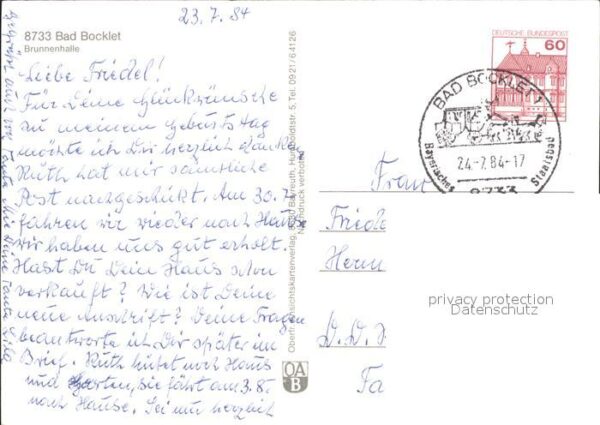 23.7.84
8733 Bad Bocklet
Brunnenhalle
Liebe Friedel!
Für Deine Glückwünsche
zu meinem Geburtstag
möchte ich Dir herzlich danken
Ruth hat mir sämtliche
Post nachgeschickt. Am 30.7.
fahren wir wieder nach Hause
wir haben uns gut erholt.
Hast Du Dein Haus schon
verkauft? Wie ist Deine
neue Anschrift? Deine Fragen
beantworte ich Dir später im
Brief. Ruth hütet noch Haus
und Garten, sie fährt am 3.8.
nach Hause. Sei nun herzlich
gegrüßt auch von Tante Mia Deine Tante
Oberfr. Ansichtskartenverlag, 8580 Bayreuth, Humboldtstr. 5, Tel. 0921/64126
Nachdruck verboten
OA
B
DEUTSCHE BUNDESPOST
60
BAD BOCKLET
24.-7.84-17
Bayerisches Staatsbad
8733
Frau
Friede
Herm
privacy protection
Datenschutz